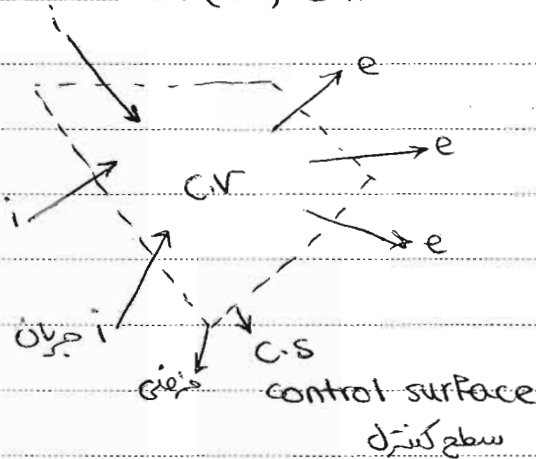 i
e
e
C.V
i
e
جریان i
C.S
فرضی
control surface
سطح کنترل